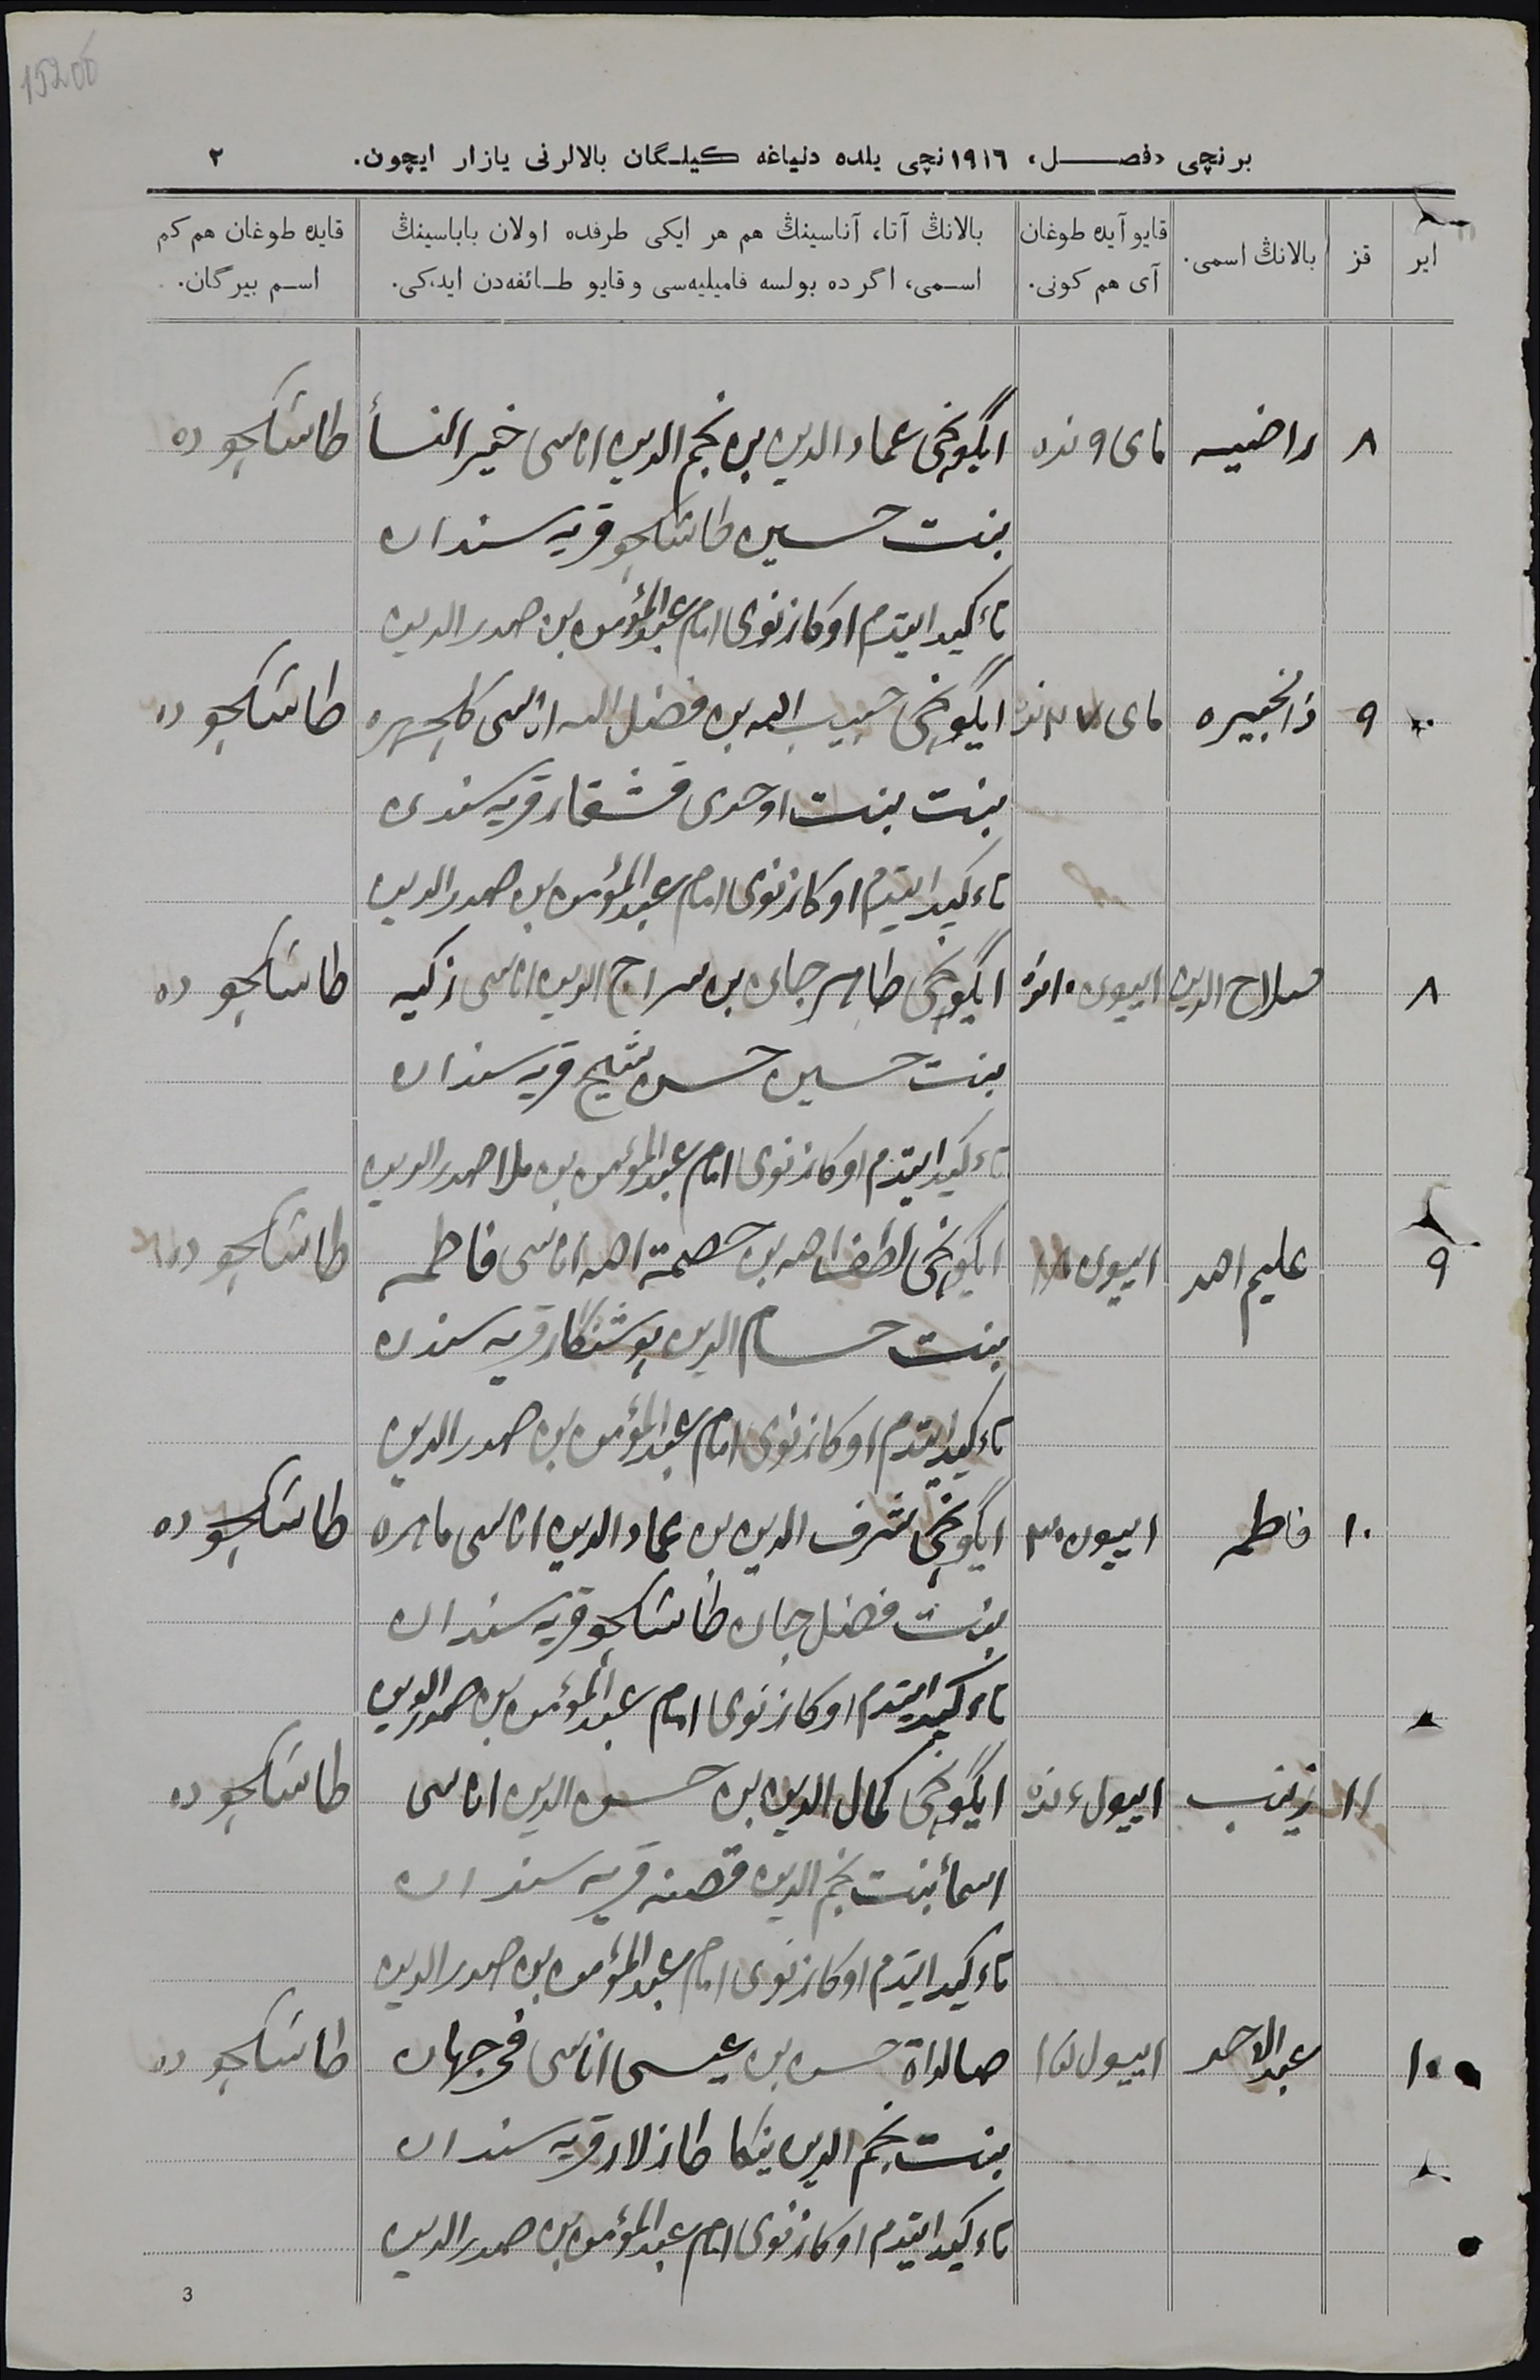 برنچی «فصل» ١٩١٦نچی یلده دنیاغه كیلگان بالالرنی یازار ایچون. ٢
ایر
قز
بالانڭ اسمی.
قایو آیده طوغان
آی هم كونی.
بالانڭ آتا، آناسینڭ هم هر ایكی طرفده اولان باباسینڭ
اسمی، اگر ده بولسه فامیلیه‌سی و قایو طائفه‌دن ایدكی.
قایده طوغان هم كم
اسم بیرگان.
٨ راضیه مای ٩ نده ایگونچی عماد الدین بن نجم الدین اناسی خیر النسأ طاشکچوده
بنت حسین طاشکچو قریه سندان
تاءکید ایتدم اوکازنوی امام عبدالمؤمن بن صدر الدین
٩ مای ٢٧ نده ایگونچی حبیب الله بن فضل الله اناسی کلچهره طاشکچوده
بنت بنت اوحدی قشقار قریه سندن
تاءکید ایتدم اوکازنوی امام عبدالمؤمن بن صدر الدین
٨ صلاح الدین اییون ١٠ نده ایگونچی طاهر جان بن سراج الدین اناسی زکیه طاشکچوده
بنت حسین حسن شیخ قریه سندان
تاءکید ایتدم اوکازنوی امام عبدالمؤمن بن ملا صدر الدین
٩ علیم الله اییون ١٨ ایگونچی لطف الله بن عصمة الله اناسی فاطمه طاشکچوده
بنت حسام الدین قریه سندن
تاءکید ایتدم اوکازنوی امام عبدالمؤمن بن صدر الدین
١٠ فاطمه اییون ٣٠ ایگونچی شرف الدین بن عماد الدین اناسی ماهره طاشکچوده
بنت فضل جان طاشکچو قریه سندان
تاءکید ایتدم اوکازنوی امام عبدالمؤمن بن صدر الدین
١١ زینب اییول ٤ نده ایگونچی کمال الدین بن حسن الدین اناسی طاشکچوده
اسمأ بنت نجم الدین قصنه قریه سندان
تاءکید ایتدم اوکازنوی امام عبدالمؤمن بن صدر الدین
١٠ عبد الاحد اییول صالداة حسن بن عیسی اناسی فخر جهان طاشکچوده
بنت نجم الدین ینکا طازلار قریه سندان
تاءکید ایتدم اوکازنوی امام عبدالمؤمن بن صدر الدین
3